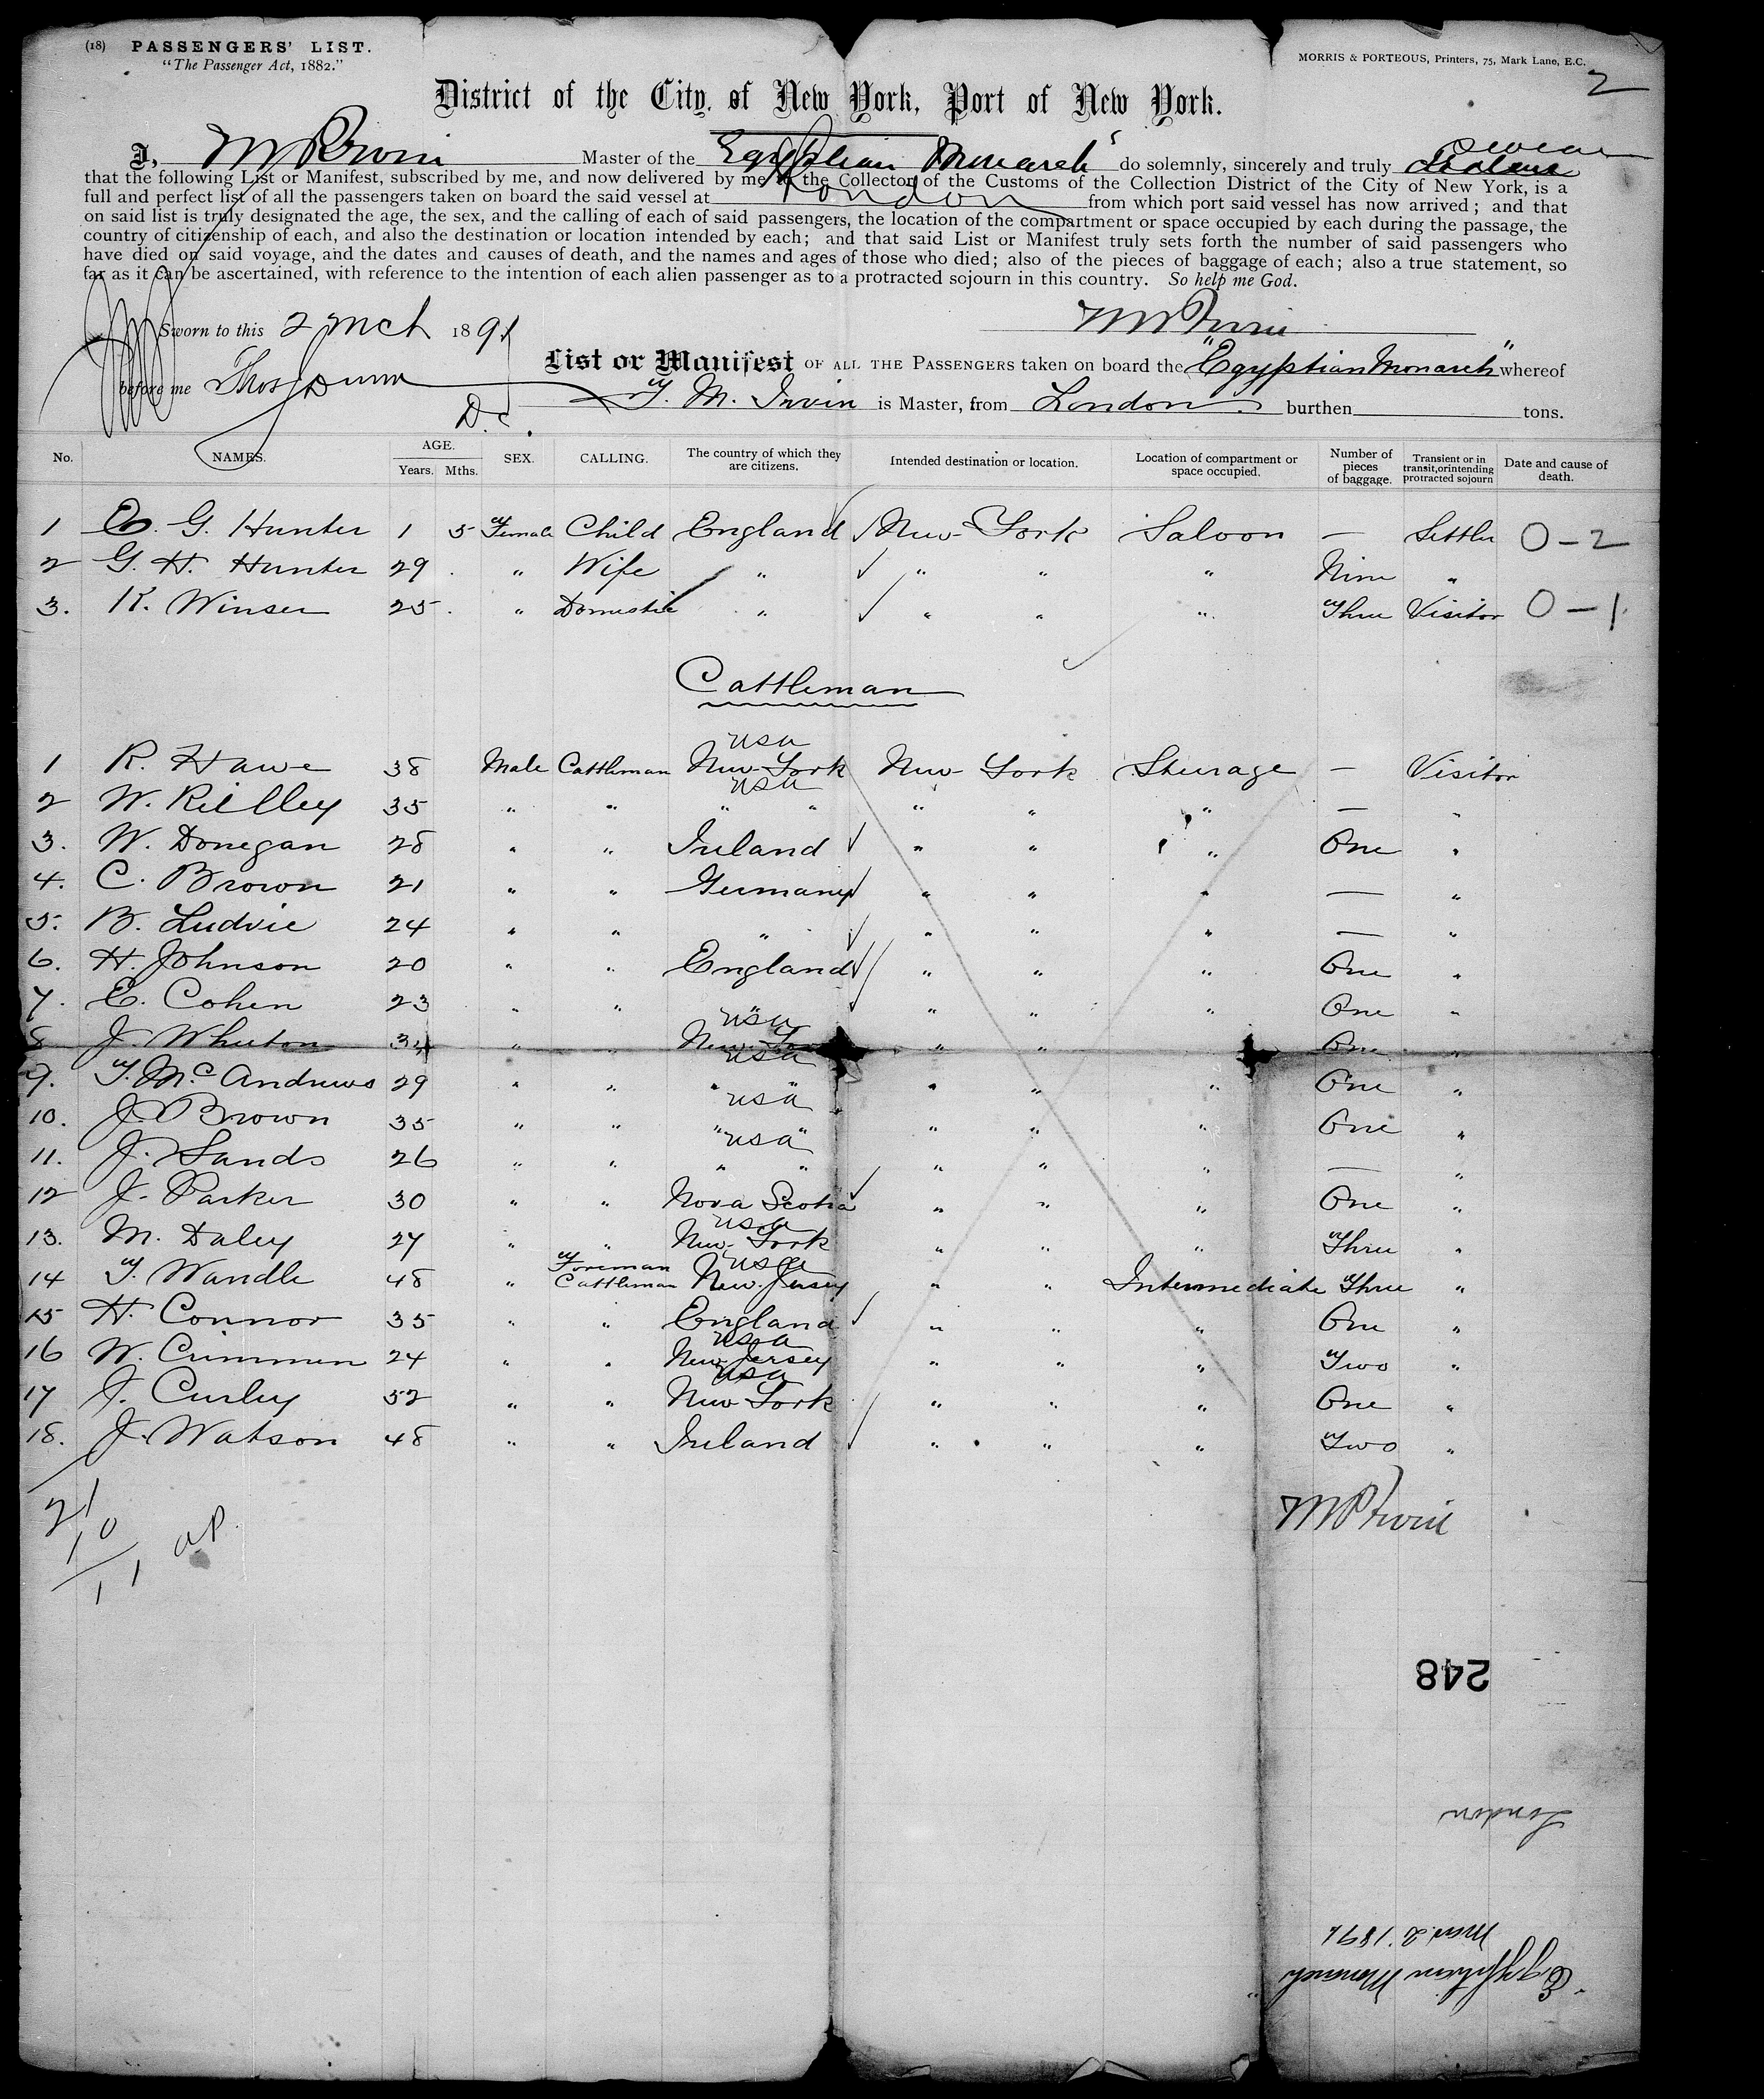 (18) PASSENGERS' LIST.
"The Passenger Act, 1882."
MORRIS & PORTEOUS, Printers, 75, Mark Lane, E.C.
2
District of the City of New York, Port of New York.
I, Master of the "Egyptian Monarch" do solemnly, sincerely and truly swear
that the following List or Manifest, subscribed by me, and now delivered by me to the Collector of the Customs of the Collection District of the City of New York, is a
full and perfect list of all the passengers taken on board the said vessel at London from which port said vessel has now arrived; and that
on said list is truly designated the age, the sex, and the calling of each of said passengers, the location of the compartment or space occupied by each during the passage, the
country of citizenship of each, and also the destination or location intended by each; and that said List or Manifest truly sets forth the number of said passengers who
have died on said voyage, and the dates and causes of death, and the names and ages of those who died; also of the pieces of baggage of each; also a true statement, so
far as it can be ascertained, with reference to the intention of each alien passenger as to a protracted sojourn in this country. So help me God.
Sworn to this 2 Mch 1891
before me Thos J Dunn
D.C.
List or Manifest OF ALL THE PASSENGERS taken on board the "Egyptian Monarch" whereof
T. M. Irvin is Master, from London burthen tons.
No. NAMES. AGE. Years. Mths. SEX. CALLING. The country of which they are citizens. Intended destination or location. Location of compartment or space occupied. Number of pieces of baggage. Transient or in transit, or intending protracted sojourn Date and cause of death.
1 E. G. Hunter 1 5 Female Child England New York Saloon — Settler 0-2
2 G. H. Hunter 29 " Wife " " " " Nine "
3. K. Winser 25 " Domestic " " " " Three Visitor 0-1
Cattleman
1 R. Hawe 38 Male Cattleman New York USA New York Steerage — Visitor
2 W. Rielley 35 " " " " USA " " " — "
3. W. Donegan 28 " " Ireland " " " One "
4. C. Brown 21 " " Germany " " " — "
5. B. Ludvic 24 " " " " " " — "
6. H. Johnson 20 " " England " " " One "
7. E. Cohen 23 " " " " " " One "
8 J. Wheton 34 " " New York USA " " " One "
9. T. McAndrews 29 " " " " USA " " " One "
10. J. Brown 35 " " " " USA " " " One "
11. J. Sands 26 " " " " USA " " " — "
12 J. Parker 30 " " Nova Scotia " " " One "
13. M. Daley 27 " " New York USA " " " Three "
14 T. Wandle 48 " Foreman Cattleman New Jersey USA " " Intermediate Three "
15 H. Connor 35 " " England " " " One "
16 W. Crimmen 24 " " New Jersey USA " " " Two "
17 J. Curley 52 " " New York USA " " " One "
18. J. Watson 48 " " Ireland " " " Two "
21
10
11
248
London
Mar 2. 1891
"Egyptian Monarch"